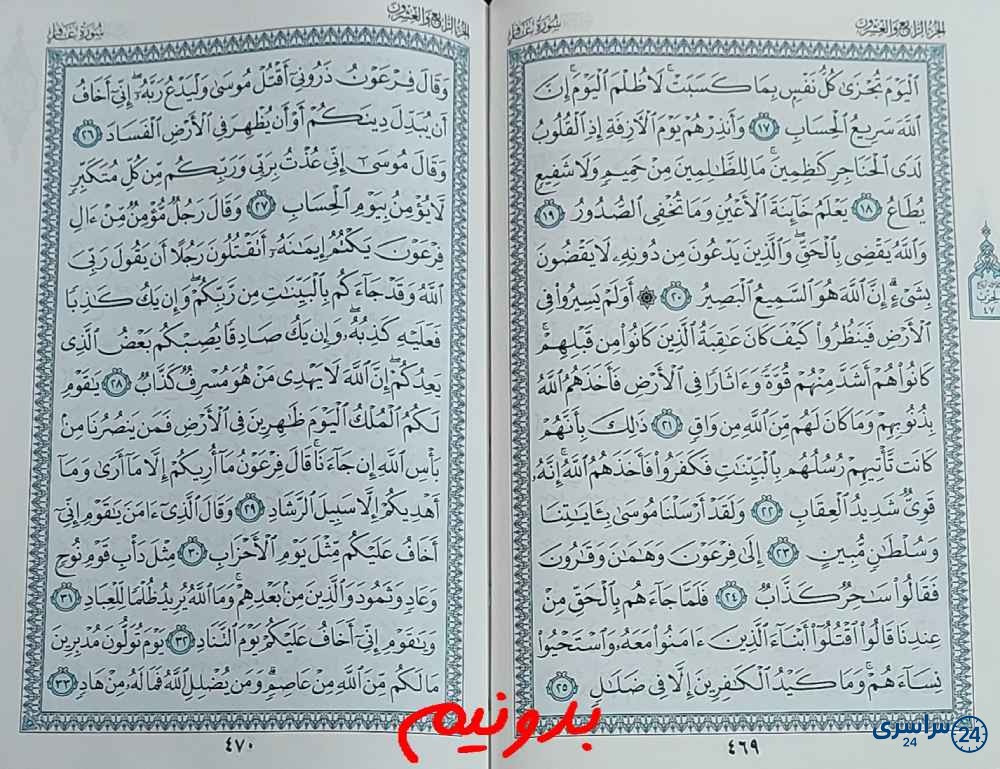 الجزء الرابع والعشرون
سورة غافر
ٱلۡيَوۡمَ تُجۡزَىٰ كُلُّ نَفۡسِۭ بِمَا كَسَبَتۡۚ لَا ظُلۡمَ ٱلۡيَوۡمَۚ إِنَّ
ٱللَّهَ سَرِيعُ ٱلۡحِسَابِ ١٧ وَأَنذِرۡهُمۡ يَوۡمَ ٱلۡأٓزِفَةِ إِذِ ٱلۡقُلُوبُ
لَدَى ٱلۡحَنَاجِرِ كَٰظِمِينَۚ مَا لِلظَّٰلِمِينَ مِنۡ حَمِيمٖ وَلَا شَفِيعٖ
يُطَاعُ ١٨ يَعۡلَمُ خَآئِنَةَ ٱلۡأَعۡيُنِ وَمَا تُخۡفِي ٱلصُّدُورُ ١٩
وَٱللَّهُ يَقۡضِي بِٱلۡحَقِّۖ وَٱلَّذِينَ يَدۡعُونَ مِن دُونِهِۦ لَا يَقۡضُونَ
بِشَيۡءٍۗ إِنَّ ٱللَّهَ هُوَ ٱلسَّمِيعُ ٱلۡبَصِيرُ ٢٠ ۞ أَوَلَمۡ يَسِيرُواْ فِي
ٱلۡأَرۡضِ فَيَنظُرُواْ كَيۡفَ كَانَ عَٰقِبَةُ ٱلَّذِينَ كَانُواْ مِن قَبۡلِهِمۡۚ
كَانُواْ هُمۡ أَشَدَّ مِنۡهُمۡ قُوَّةٗ وَءَاثَارٗا فِي ٱلۡأَرۡضِ فَأَخَذَهُمُ ٱللَّهُ
بِذُنُوبِهِمۡ وَمَا كَانَ لَهُم مِّنَ ٱللَّهِ مِن وَاقٖ ٢١ ذَٰلِكَ بِأَنَّهُمۡ
كَانَت تَّأۡتِيهِمۡ رُسُلُهُم بِٱلۡبَيِّنَٰتِ فَكَفَرُواْ فَأَخَذَهُمُ ٱللَّهُۚ إِنَّهُۥ
قَوِيّٞ شَدِيدُ ٱلۡعِقَابِ ٢٢ وَلَقَدۡ أَرۡسَلۡنَا مُوسَىٰ بِـَٔايَٰتِنَا
وَسُلۡطَٰنٖ مُّبِينٍ ٢٣ إِلَىٰ فِرۡعَوۡنَ وَهَٰمَٰنَ وَقَٰرُونَ
فَقَالُواْ سَٰحِرٞ كَذَّابٞ ٢٤ فَلَمَّا جَآءَهُم بِٱلۡحَقِّ مِنۡ
عِندِنَا قَالُواْ ٱقۡتُلُوٓاْ أَبۡنَآءَ ٱلَّذِينَ ءَامَنُواْ مَعَهُۥ وَٱسۡتَحۡيُواْ
نِسَآءَهُمۡۚ وَمَا كَيۡدُ ٱلۡكَٰفِرِينَ إِلَّا فِي ضَلَٰلٖ ٢٥
٤٦٩
الحزب
٤٧
الجزء الرابع والعشرون
سورة غافر
وَقَالَ فِرۡعَوۡنُ ذَرُونِيٓ أَقۡتُلۡ مُوسَىٰ وَلۡيَدۡعُ رَبَّهُۥٓۖ إِنِّيٓ أَخَافُ
أَن يُبَدِّلَ دِينَكُمۡ أَوۡ أَن يُظۡهِرَ فِي ٱلۡأَرۡضِ ٱلۡفَسَادَ ٢٦
وَقَالَ مُوسَىٰٓ إِنِّي عُذۡتُ بِرَبِّي وَرَبِّكُم مِّن كُلِّ مُتَكَبِّرٖ
لَّا يُؤۡمِنُ بِيَوۡمِ ٱلۡحِسَابِ ٢٧ وَقَالَ رَجُلٞ مُّؤۡمِنٞ مِّنۡ ءَالِ
فِرۡعَوۡنَ يَكۡتُمُ إِيمَٰنَهُۥٓ أَتَقۡتُلُونَ رَجُلًا أَن يَقُولَ رَبِّيَ
ٱللَّهُ وَقَدۡ جَآءَكُم بِٱلۡبَيِّنَٰتِ مِن رَّبِّكُمۡۖ وَإِن يَكُ كَٰذِبٗا
فَعَلَيۡهِ كَذِبُهُۥۖ وَإِن يَكُ صَادِقٗا يُصِبۡكُم بَعۡضُ ٱلَّذِي
يَعِدُكُمۡۖ إِنَّ ٱللَّهَ لَا يَهۡدِي مَنۡ هُوَ مُسۡرِفٞ كَذَّابٞ ٢٨ يَٰقَوۡمِ
لَكُمُ ٱلۡمُلۡكُ ٱلۡيَوۡمَ ظَٰهِرِينَ فِي ٱلۡأَرۡضِ فَمَن يَنصُرُنَا مِنۢ
بَأۡسِ ٱللَّهِ إِن جَآءَنَاۚ قَالَ فِرۡعَوۡنُ مَآ أُرِيكُمۡ إِلَّا مَآ أَرَىٰ وَمَآ
أَهۡدِيكُمۡ إِلَّا سَبِيلَ ٱلرَّشَادِ ٢٩ وَقَالَ ٱلَّذِيٓ ءَامَنَ يَٰقَوۡمِ إِنِّيٓ
أَخَافُ عَلَيۡكُم مِّثۡلَ يَوۡمِ ٱلۡأَحۡزَابِ ٣٠ مِثۡلَ دَأۡبِ قَوۡمِ نُوحٖ
وَعَادٖ وَثَمُودَ وَٱلَّذِينَ مِنۢ بَعۡدِهِمۡۚ وَمَا ٱللَّهُ يُرِيدُ ظُلۡمٗا لِّلۡعِبَادِ ٣١
وَيَٰقَوۡمِ إِنِّيٓ أَخَافُ عَلَيۡكُمۡ يَوۡمَ ٱلتَّنَادِ ٣٢ يَوۡمَ تُوَلُّونَ مُدۡبِرِينَ
مَا لَكُم مِّنَ ٱللَّهِ مِنۡ عَاصِمٖۗ وَمَن يُضۡلِلِ ٱللَّهُ فَمَا لَهُۥ مِنۡ هَادٖ ٣٣
٤٧٠
بدونیم
سراسری 24
24